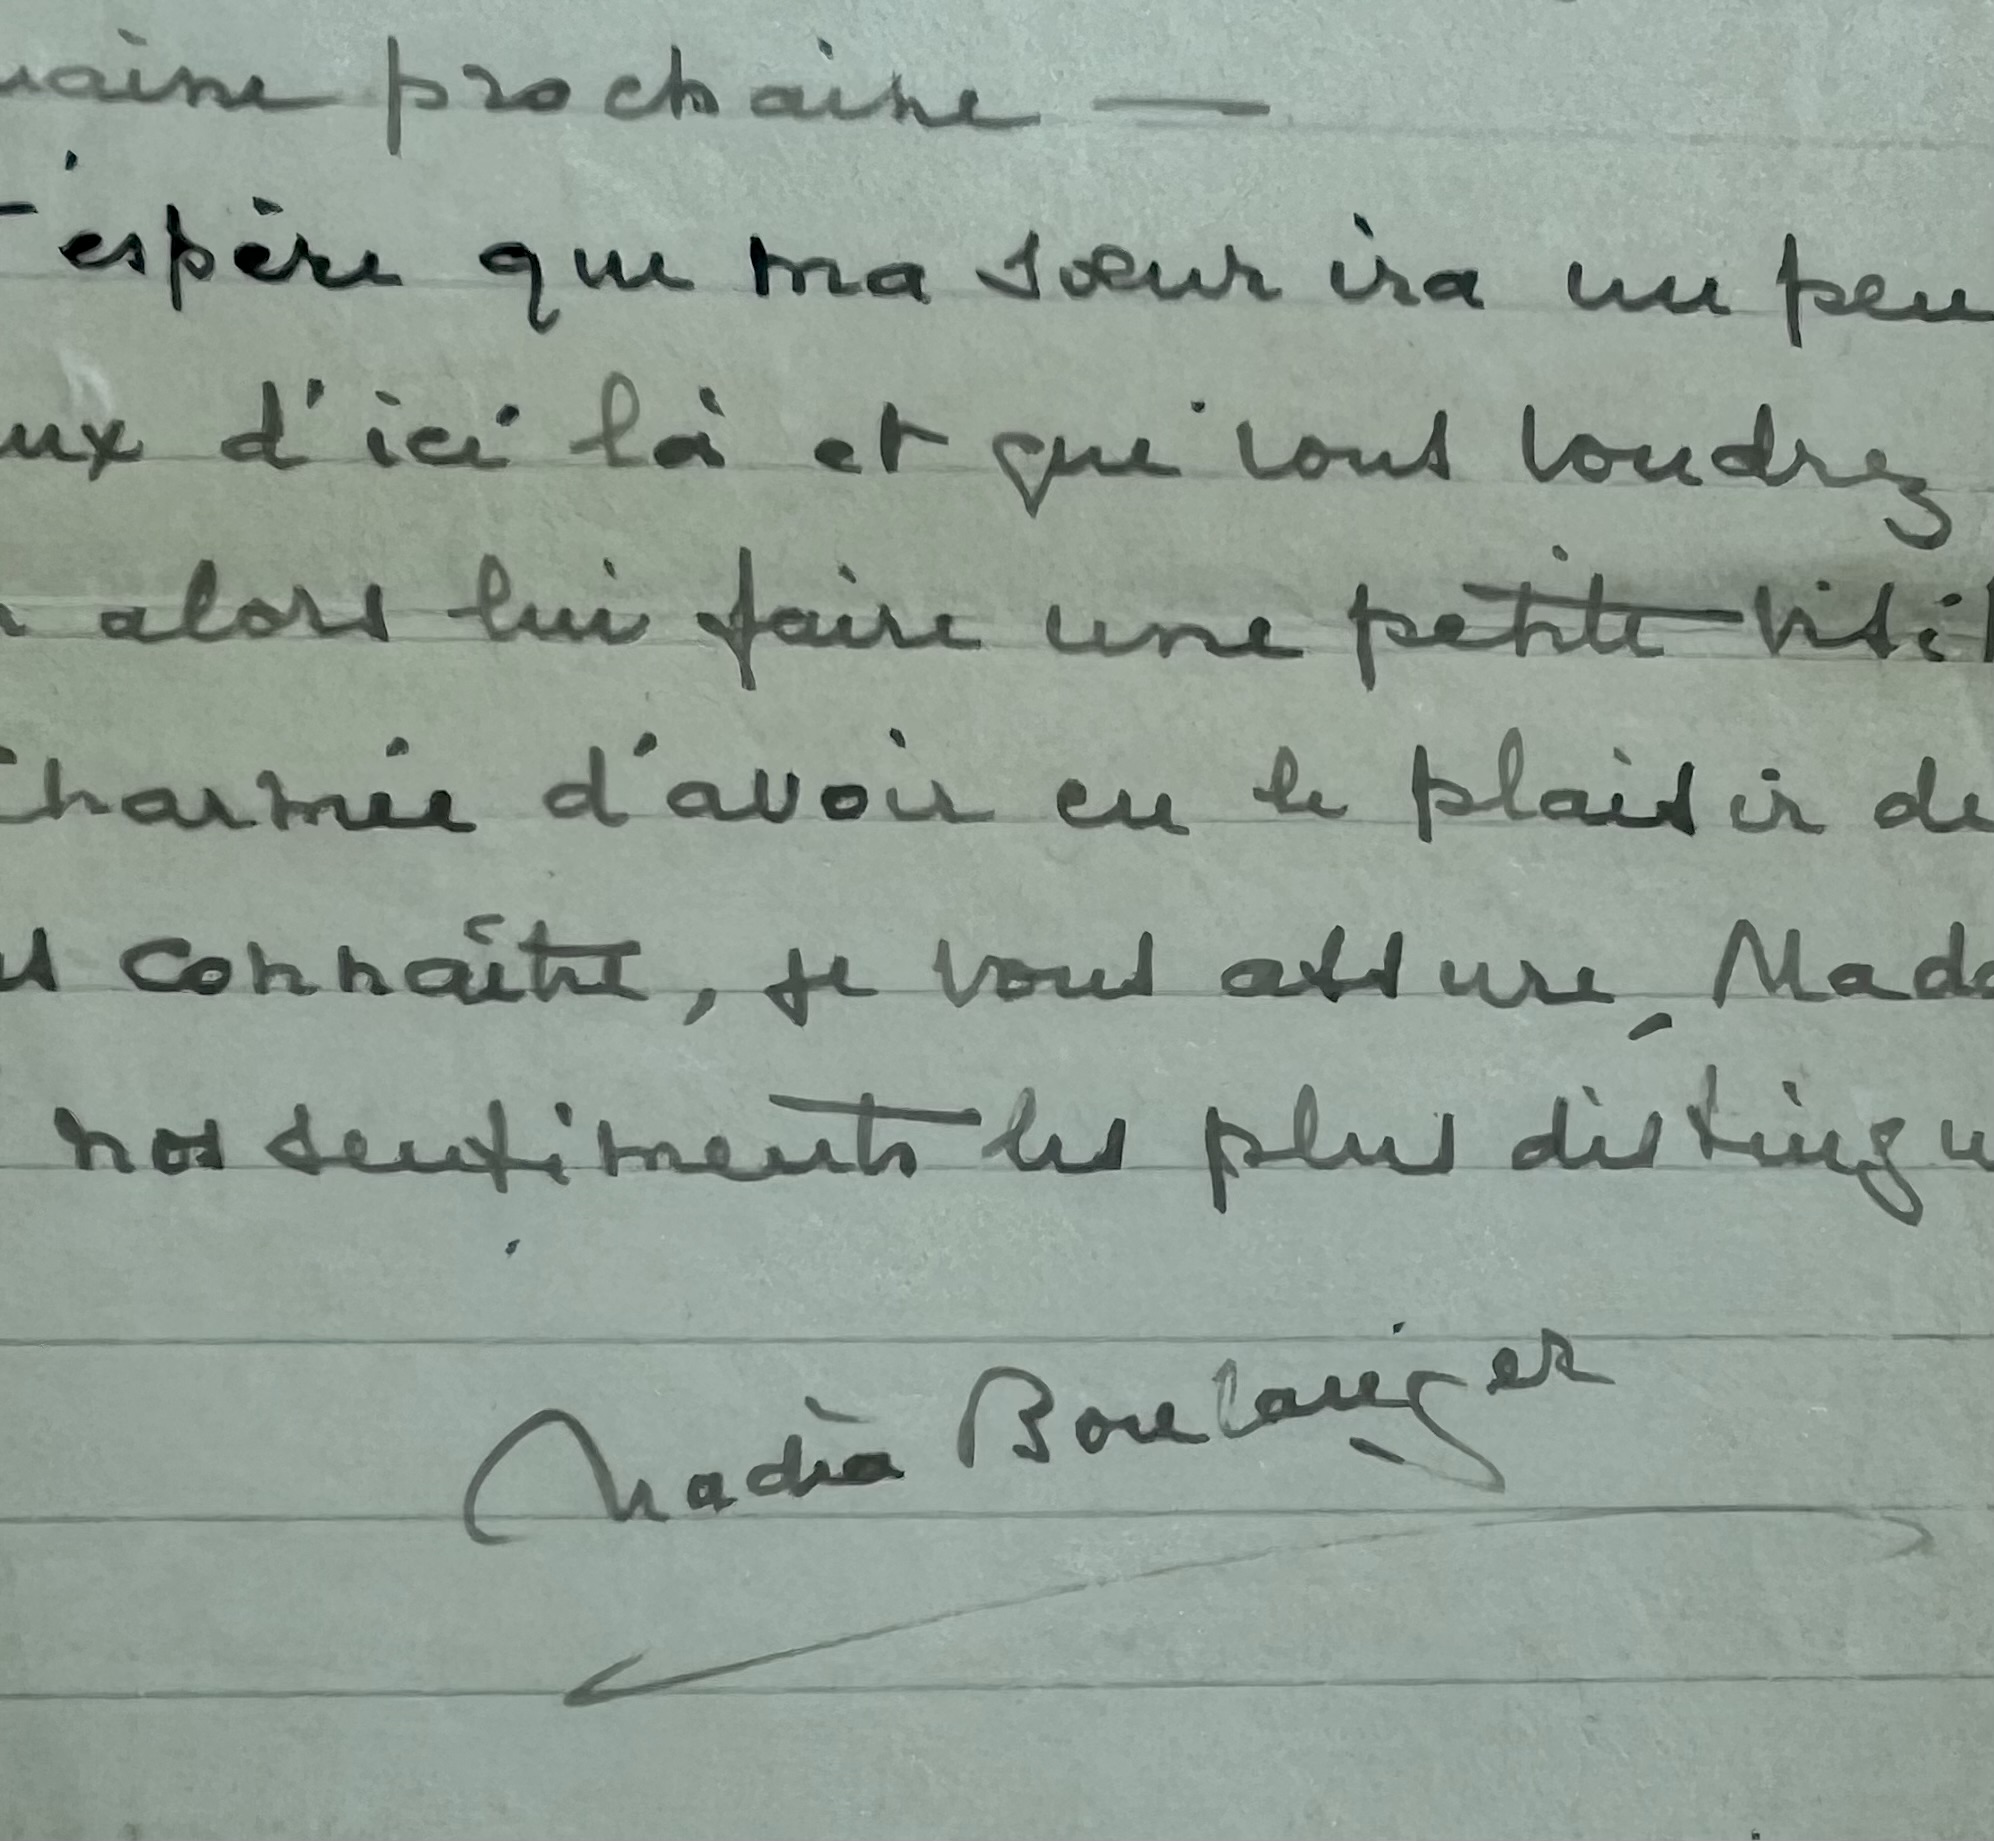 maine prochaine —
J'espère que ma sœur ira un peu
eux d'ici là et que vous voudrez
alors lui faire une petite visit
Charmée d'avoir eu le plaisir de
connaître, je vous assure, Mada
nos sentiments les plus distingu
Nadia Boulanger